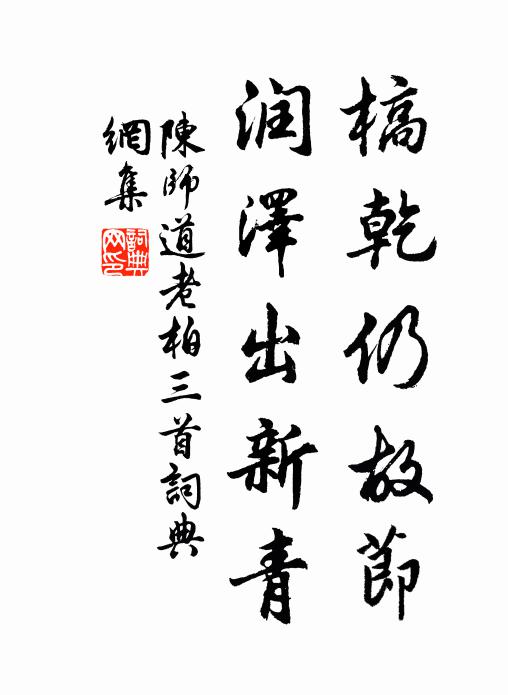 槁乾仍故節
润澤出新青
陳師道老柏三首詞典
網集
詞典网印